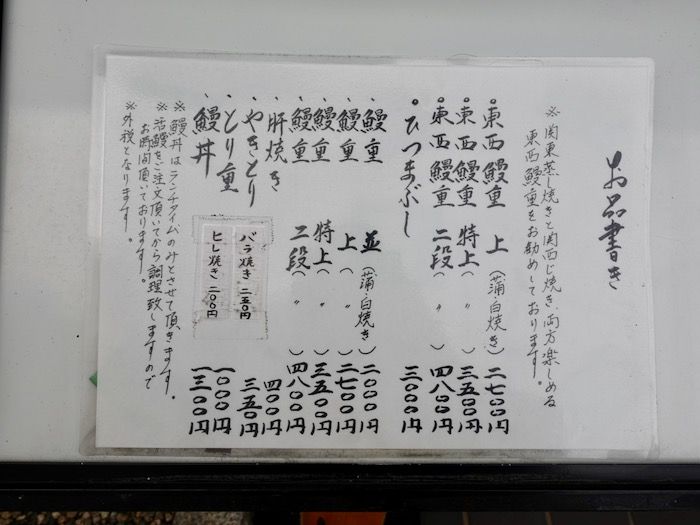 お品書き
※関東蒸し焼きと関西じ焼き、両方楽しめる
東西鰻重をお勧めしております。
°東西鰻重 上 (蒲・白焼き) 二七〇〇円
°東西鰻重 特上 ( 〃 ) 三五〇〇円
°東西鰻重 二段 ( 〃 ) 四八〇〇円
°ひつまぶし 三〇〇〇円
、鰻重 並 (蒲・白焼き) 二〇〇〇円
、鰻重 上 ( 〃 ) 二七〇〇円
、鰻重 特上 ( 〃 ) 三五〇〇円
、鰻重 二段 ( 〃 ) 四八〇〇円
、肝焼き 四〇〇円
、やきとり 三五〇円
、とり重 一〇〇〇円
、鰻丼 一三〇〇円
バラ焼き 二五〇円
ヒレ焼き 二〇〇円
※鰻丼はランチタイムのみとさせて頂きます。
※活鰻をご注文頂いてから調理致しますので
お時間頂いております。
※外税となります。